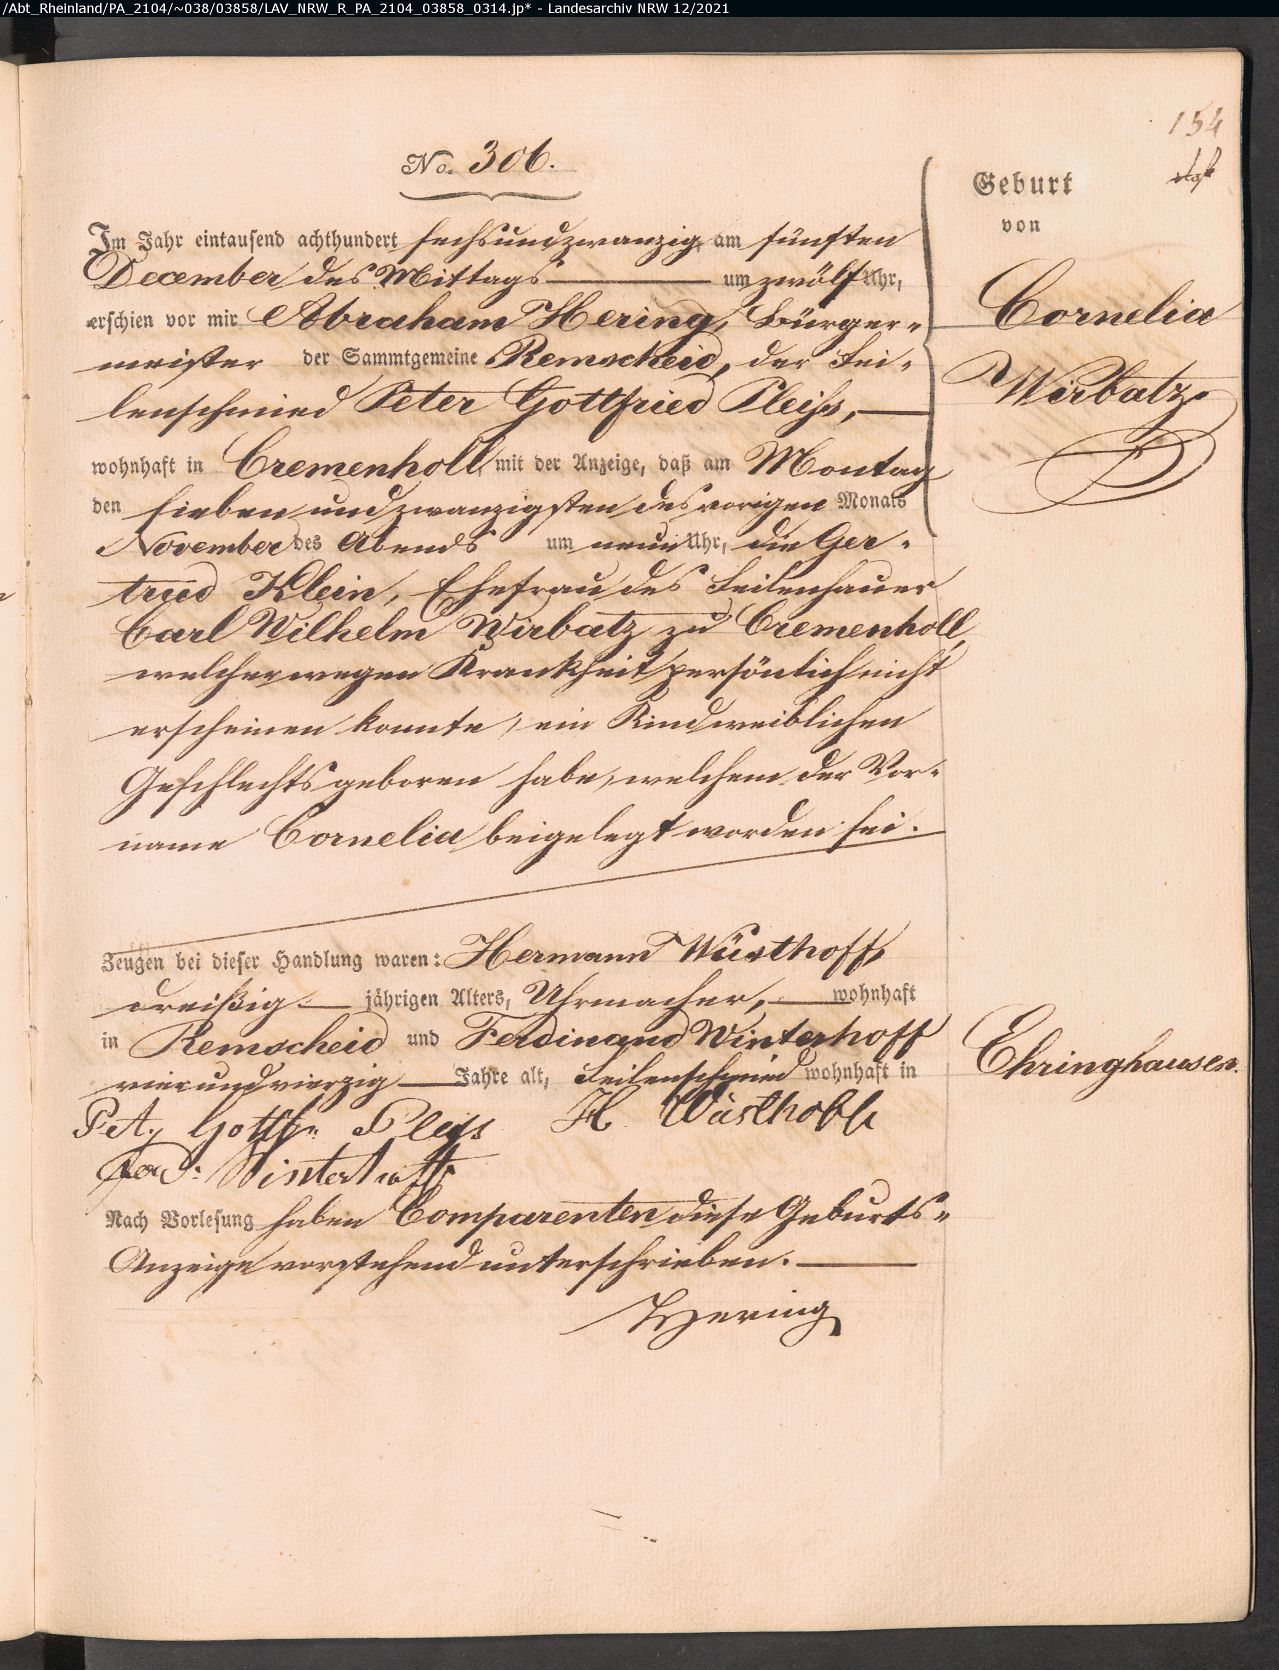 /Abt_Rheinland/PA_2104/~038/03858/LAV_NRW_R_PA_2104_03858_0314.jp* - Landesarchiv NRW 12/2021
154
No. 306.
Geburt
von
Cornelia
Wirbatz.
Im Jahr eintausend achthundert sechsundzwanzig, am fünften
December des Mittags um zwölf Uhr,
erschien vor mir Abraham Hering, Bürger-
meister der Sammtgemeine Remscheid, der Fei-
lenschmied Peter Gottfried Pleiss,
wohnhaft in Cremenholl, mit der Anzeige, daß am Montag
den sieben und zwanzigsten des vorigen Monats
November des Abends um neun Uhr, die Ger-
trud Klein, Ehefrau des Feilenhauer
Carl Wilhelm Wirbatz zu Cremenholl,
welcher wegen Krankheit persönlich nicht
erscheinen konnte, ein Kind weiblichen
Geschlechts geboren habe, welchem der Vor-
name Cornelia beigelegt worden sei.
Zeugen bei dieser Handlung waren: Hermann Wüsthoff,
dreißig jährigen Alters, Uhrmacher, wohnhaft
in Remscheid und Ferdinand Winterhoff
vier und vierzig Jahre alt, Feilenschmied wohnhaft in
Ehringhausen.
Pet. Gottfr. Pleiss H Wüsthoff
Ferd: Winterhoff
Nach Vorlesung haben Comparenten diese Geburts-
Anzeige vorstehend unterschrieben.
Hering